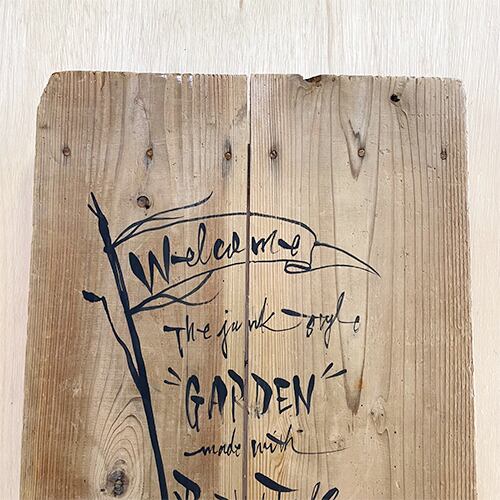 Welcome
The junk style
"GARDEN"
made with